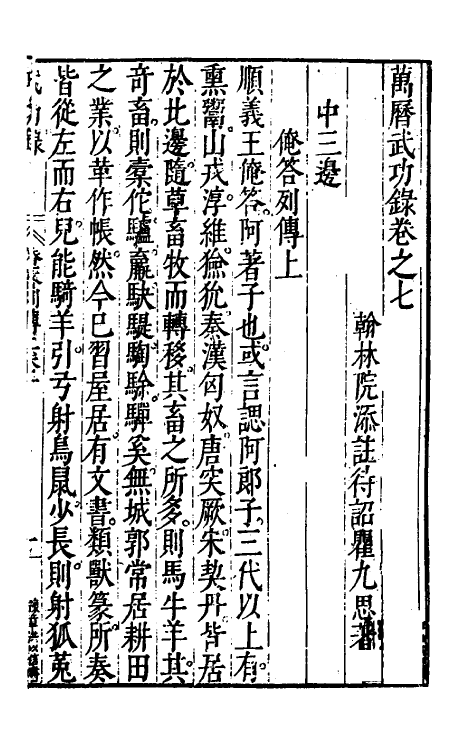 萬曆武功錄卷之七
翰林院添註待詔瞿九思著
中三邊
俺答列傳上
順義王俺答阿著子也或言諰阿郎子三代以上有
熏鬻山戎淳維獫狁秦漢匈奴唐突厥宋契丹皆居
於北邊隨草畜牧而轉移其畜之所多則馬牛羊其
奇畜則橐佗驢驘駃騠騊駼驒奚無城郭常居耕田
之業以革作帳然今已習屋居有文書類獸篆所奏
皆從左而右兒能騎羊引弓射鳥鼠少長則射狐兎